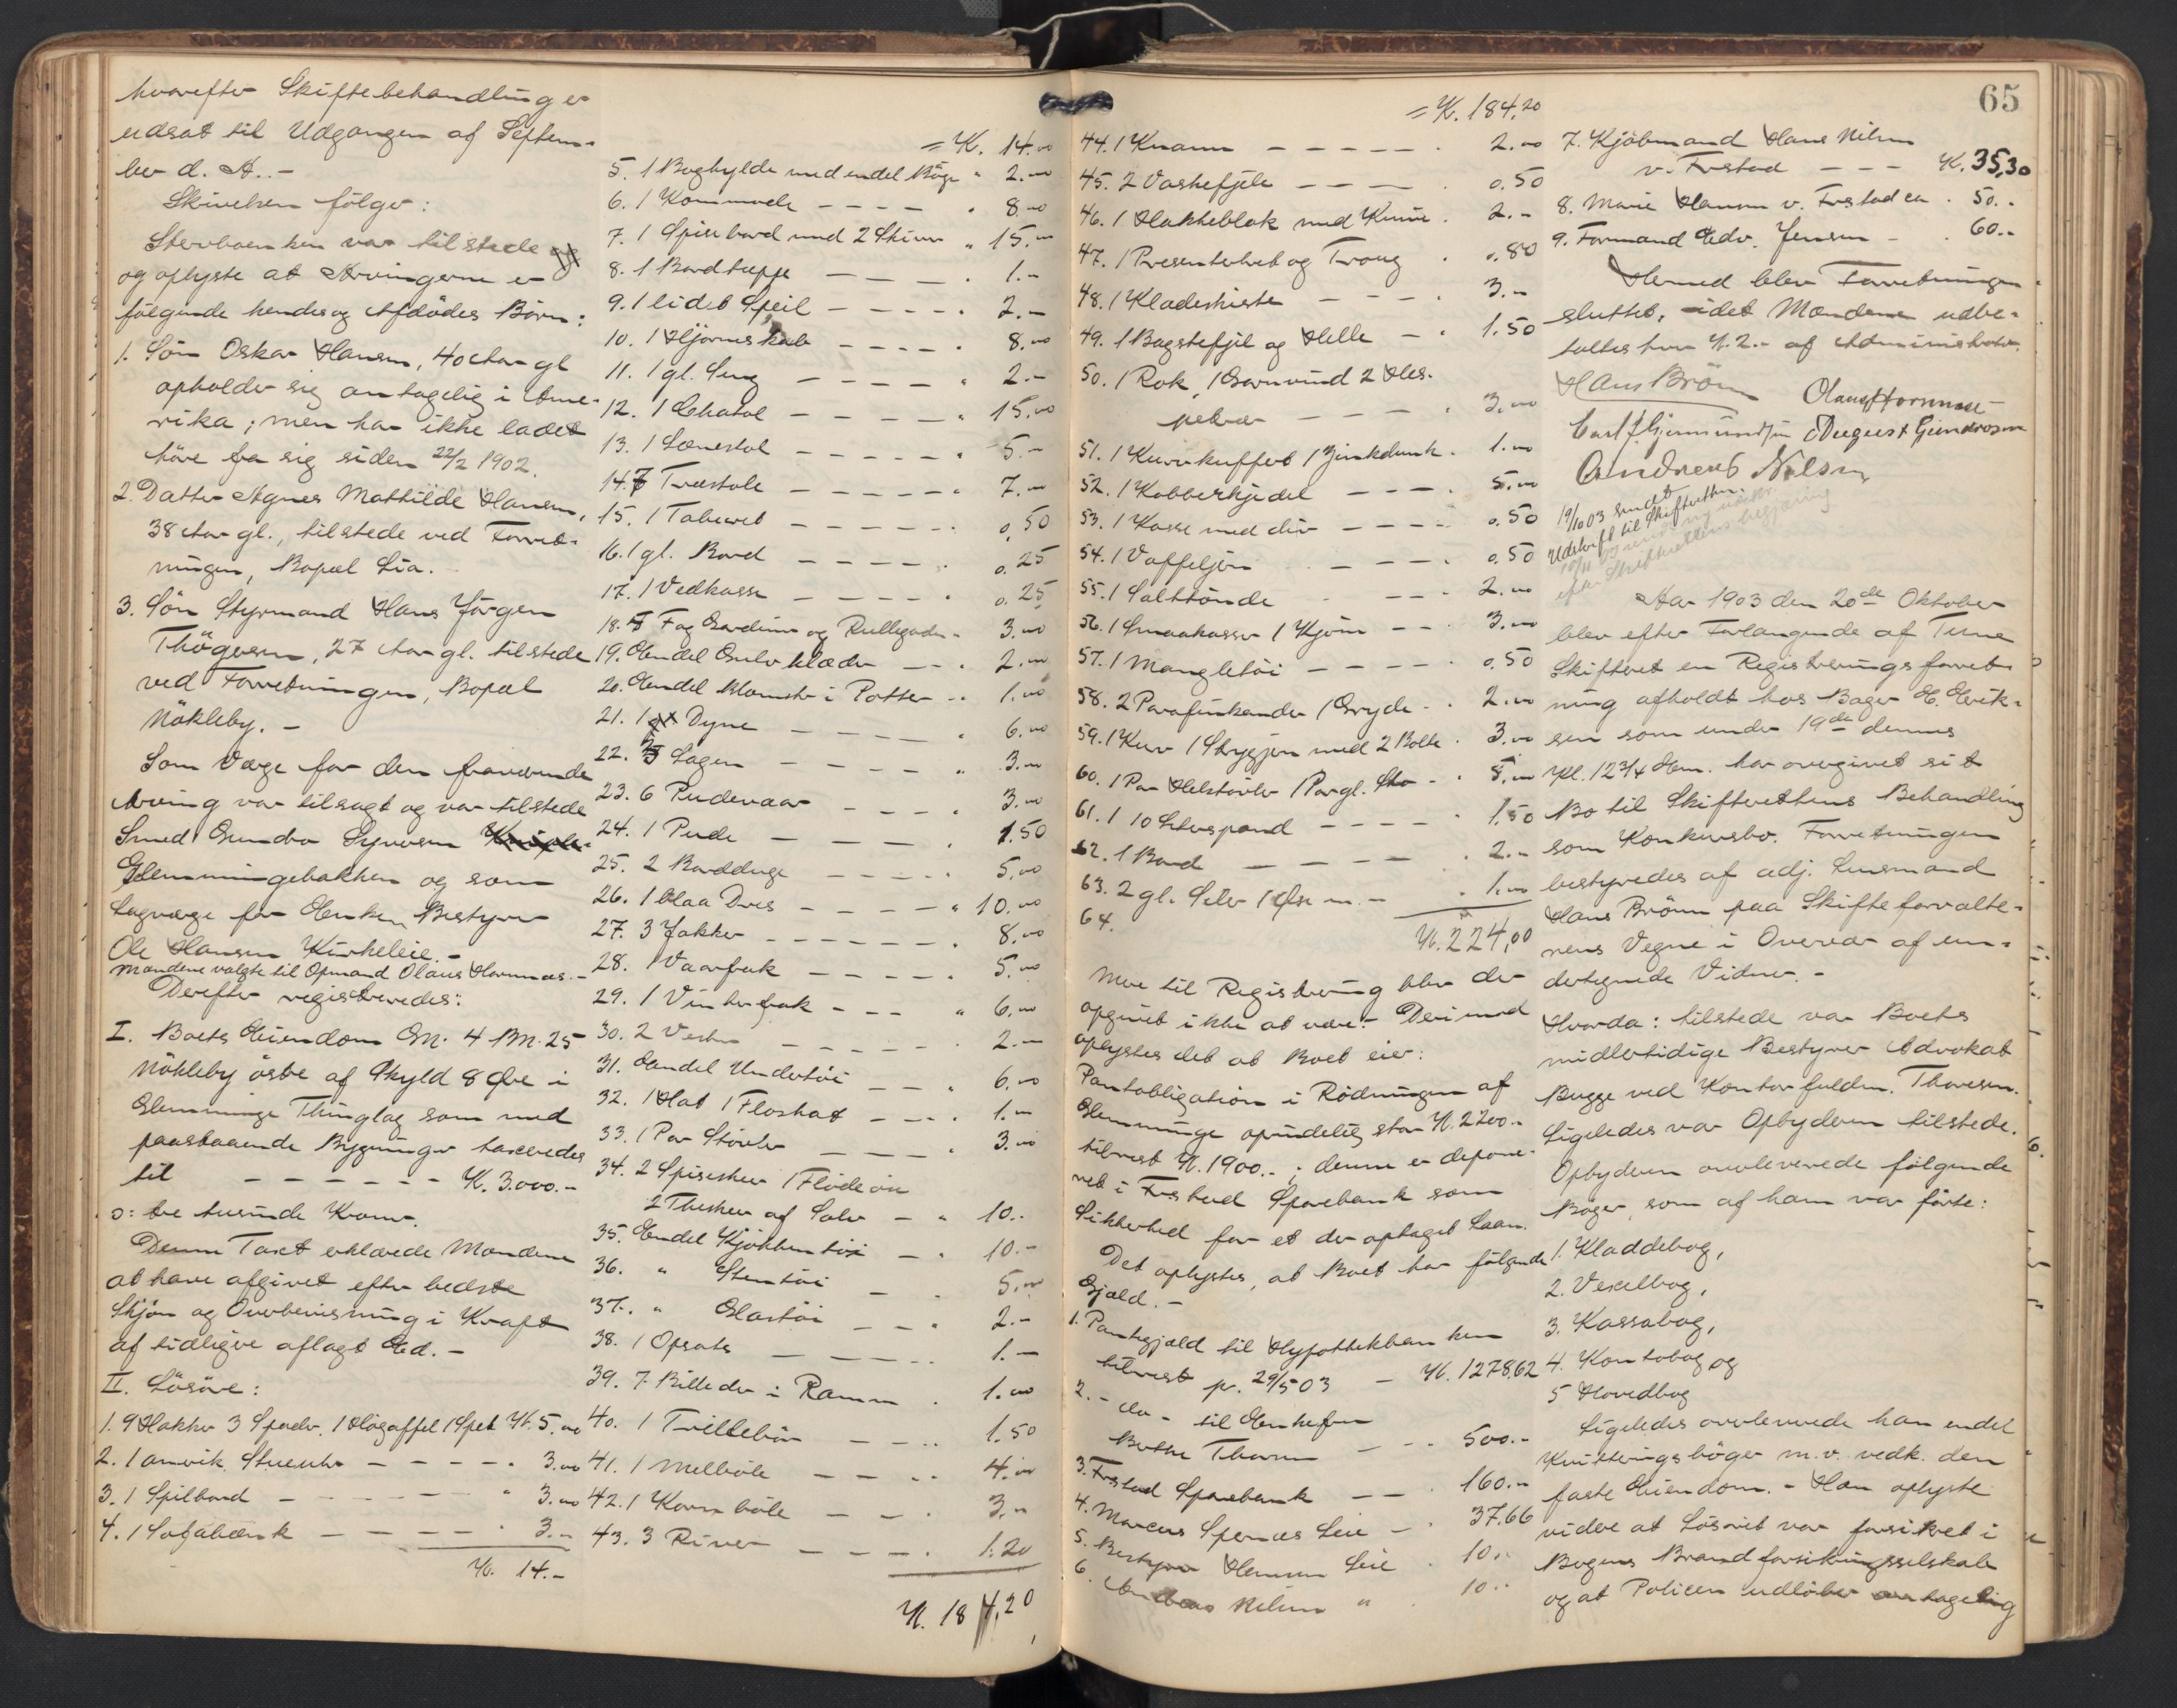 hvorefter Skiftebehandling er
udsat til Udgangen af Septem-
ber d. A. -
Skivelsen følger:
Stervboenken var tilstede
og oplyste at Arvingerne er
følgende hendes og Afdødes Børn:
1. Søn Oskar Hansen, 40 Aar gl
opholder sig antagelig i Ame-
rika; men har ikke ladet
høre fra sig siden 22/2 1902.
2. Datter Agnes Mathilde Hansen,
38 Aar gl., tilstede ved Forret-
ningen, Bopæl Lia.
3. Søn Styrmand Hans Jörgen
Thögersen, 27 Aar gl. tilstede
ved Forretningen, Bopæl
Nökleby. -
Som Værge for den fraværende
Arving var tilsagt og var tilstede
Smed Gundro Syversen
Glemmingebakken og som
Lagværge for Enken Bestyrer
Ole Hansen Kirkeleie. -
Mændene valgte til Opmand Olaus Hornnæs. -
Derefter registreredes:
I. Boets Eiendom Gn. 4 Bn. 25
Nökleby östre af Skyld 8 Øre i
Glemminge Thinglag som med
paastaaende Bygninger taxeredes
til - - - - - - K. 3.000.-
ɔ: tre tusinde Kroner.
Denne Taxt erklærede Mændene
at have afgivet efter bedste
Skjøn og Overbevisning i Kraft
af tidligere aflagt Ed. -
II. Lösöre:
1. 9 Hakker 3 Spader, 1 Høgaffel 1 Spet K. 5.00
2. 1 amrik. Stueuhr - - - - - 3.00
3. 1 Spilbord - - - - - " 3.00
4. 1 Sofabænk - - - - - 3.-
K. 14.-
= K. 14.00
5. 1 Boghylde med endel Bøger " 2.00
6. 1 Kommode - - - - " 8.00
7. 1 Spisebord med 2 Skiver " 15.00
8. 1 Bordteppe - - - 1.-
9. 1 lidet Speil - - - - 2.-
10. 1 Hjørneskab - - - - 8.00
11. 1 gl. Seng - - - - " 2.-
12. 1 Chatol - - - - - " 15.00
13. 1 Lænestol - - - - - 5.-
14. 7 Træstole - - - - - " 7.00
15. 1 Taburet - - - - - 0,50
16. 1 gl. Bord - - - - - 0.25
17. 1 Vedkasse - - - - - 0.25
18. Fag Gardiner og Rullegardin " 3.00
19. Endel Gulvklæder - - - 2.00
20. Endel Blomster i Potter - 1.00
21. 1 Dyne - - - - - " 6.00
22. 3 Lagen - - - - - " 3.00
23. 6 Pudevaar - - - " 3.00
24. 1 Pude - - - - . 1.50
25. 2 Bordduge - - - - " 5.00
26. 1 blaa Dres - - - - " 10.00
27. 3 Jakker - - - - - 8.00
28. 1 Vaarfrak - - - - - 5.00
29. 1 Vinterfrak - - - " 6.00
30. 2 Vester - - - - - 2.-
31. Endel Undertöi - - " 6.00
32. 1 Hat 1 Floshat - - - 1.-
33. 1 Par Støvler - - - - 3.00
34. 2 Spiseskeer 1 Flödeöse
2 Theskeer af Sølv - " 10.-
35. Endel Kjøkkentøi - . 10.-
36. " Stentøi - . 5.00
37. " Glastøi - - " 2.-
38. 1 Opsats - - - - - 1.-
39. 7 Billeder i Ramme . 1.00
40. 1 Trillebör - - - 1.50
41. 1 Melbøle - - - 4.00
42. 1 Kornbøle - - - 3.-
43. 3 River - - - - 1.20
K. 184,20
65
= K. 184,20
44. 1 Kværn - - - - - 2.00
45. 2 Vaskefjele - - - - 0.50
46. 1 Hakkeblok med Kniv . 2.-
47. 1 Presenterbret og Traug . 0.80
48. 1 Klædeskiste - - - - 3.-
49. 1 Bagstefjel og Helle - " 1.50
50. 1 Rok, 1 Garnvind 2 Hes-
petrær - - - - 3.00
51. 1 Kurvkuffert 1 Zinkdunk . 1.00
52. 1 Kobberkjedel - - - . 5.00
53. 1 Kasse med div - - - 0.50
54. 1 Vaffeljern - - - 0.50
55. 1 Salttønde - - - 2.00
56. 1 Smaakasser 1 Kjørn - - 3.00
57. 1 Mangletøi - - - - 0.50
58. 2 Parafinkander 1 Gryde - 2.00
59. 1 Kurv 1 Strygjern med 2 Bolte . 3.00
60. 1 Par Helstövler 1 Par gl. Sko - . 5.00
61. 1 10 Literspand - - - - 1.50
62. 1 Bord - - - - . 2.-
63. 2 gl. Seler 1 Øse m. - . 1.00
64.
K. 224,00
Mere til Registrering blev der
opgivet ikke at være. Derimod
oplystes det at Boet eier:
Pantobligation i Rødningen af
Glemminge oprindelig stor K. 2200.-
tilrest K. 1900.-; denne er depone-
ret i Frstad Sparebank som
Sikkerhed for et der optaget Laan.
Det oplystes, at Boet har følgende
Gjæld. -
1. Pantegjæld til Hypothekbanken
tilrest pr. 29/5 03 - K. 1278,62
2. - do - til Enkefru
Bothe Thorsen - - - 500.-
3. Frstad Sparebank - - . 160.-
4. Marcus Spernæs Leie - . 37,66
5. Bestyrer Hansen Leie . 10.-
6. Andreas Nilsen " . 10.-
7. Kjøbmand Hans Nilsen
v. Frstad - - - K. 35,30
8. Marie Hansen v. Frstad ca . 50.-
9. Formand Edv. Jensen - . 60.-
Hermed blev Forretningen
sluttet, idet Mændene udbe-
taltes hver K. 2.- af Administrator.
Hans Brönn Olaus Hornnæs
Carl J. Gjermundsen August Gundersen
Andreas Nilsen
19/10 03 sendt
Udskrift til Skifteretten.
efter Skifterettens begjæring
Aar 1903 den 20de Oktober
blev efter Forlangende af Tune
Skifteret en Registreringsforret-
ning afholdt hos Bager E. Erik-
sen som under 19de dennes
Kl. 12 3/4 Em. har overgivet sit
Bo til Skifterettens Behandling
som Konkursbo. Forretningen
bestyredes af adj. Lensmand
Hans Brönn paa Skifteforvalte-
rens Vegne i Overvær af un-
dertegnede Vidner. -
Hvorda: tilstede var Boets
midlertidige Bestyrer Advokat
Bugge ved Kontorfuldm. Thoresen.
Ligeledes var Opbyderen tilstede.
Opbyderen overleverede følgende
Bøger, som af ham var førte:
1. Kladdebog,
2. Vexelbog,
3. Kassabog,
4. Kontobog og
5 Hovedbog
Ligeledes overleverede han endel
Kvitteringsbøger m.v. vedk. den
faste Eiendom. - Han oplyste
videre at Løsøret var forsikret i
Bogens Brandforsikringsselskab
og at Policen udløber antagelig